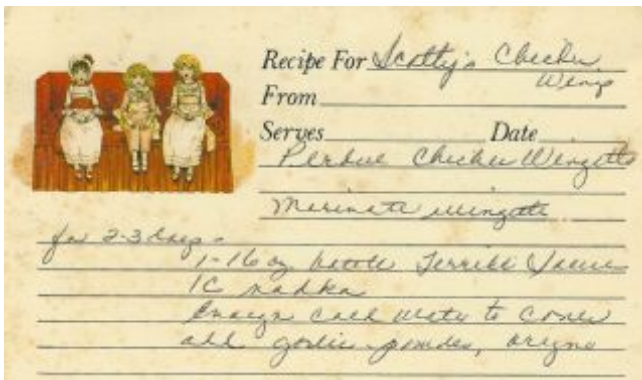 Recipe For Scotty's Chicken
Wings
From
Serves Date
Perdue Chicken Wingetts
Marinate wingetts
for 2-3 days -
1-16 oz bottle Sauce
1C vodka
Enough cold water to cover
add garlic powder,